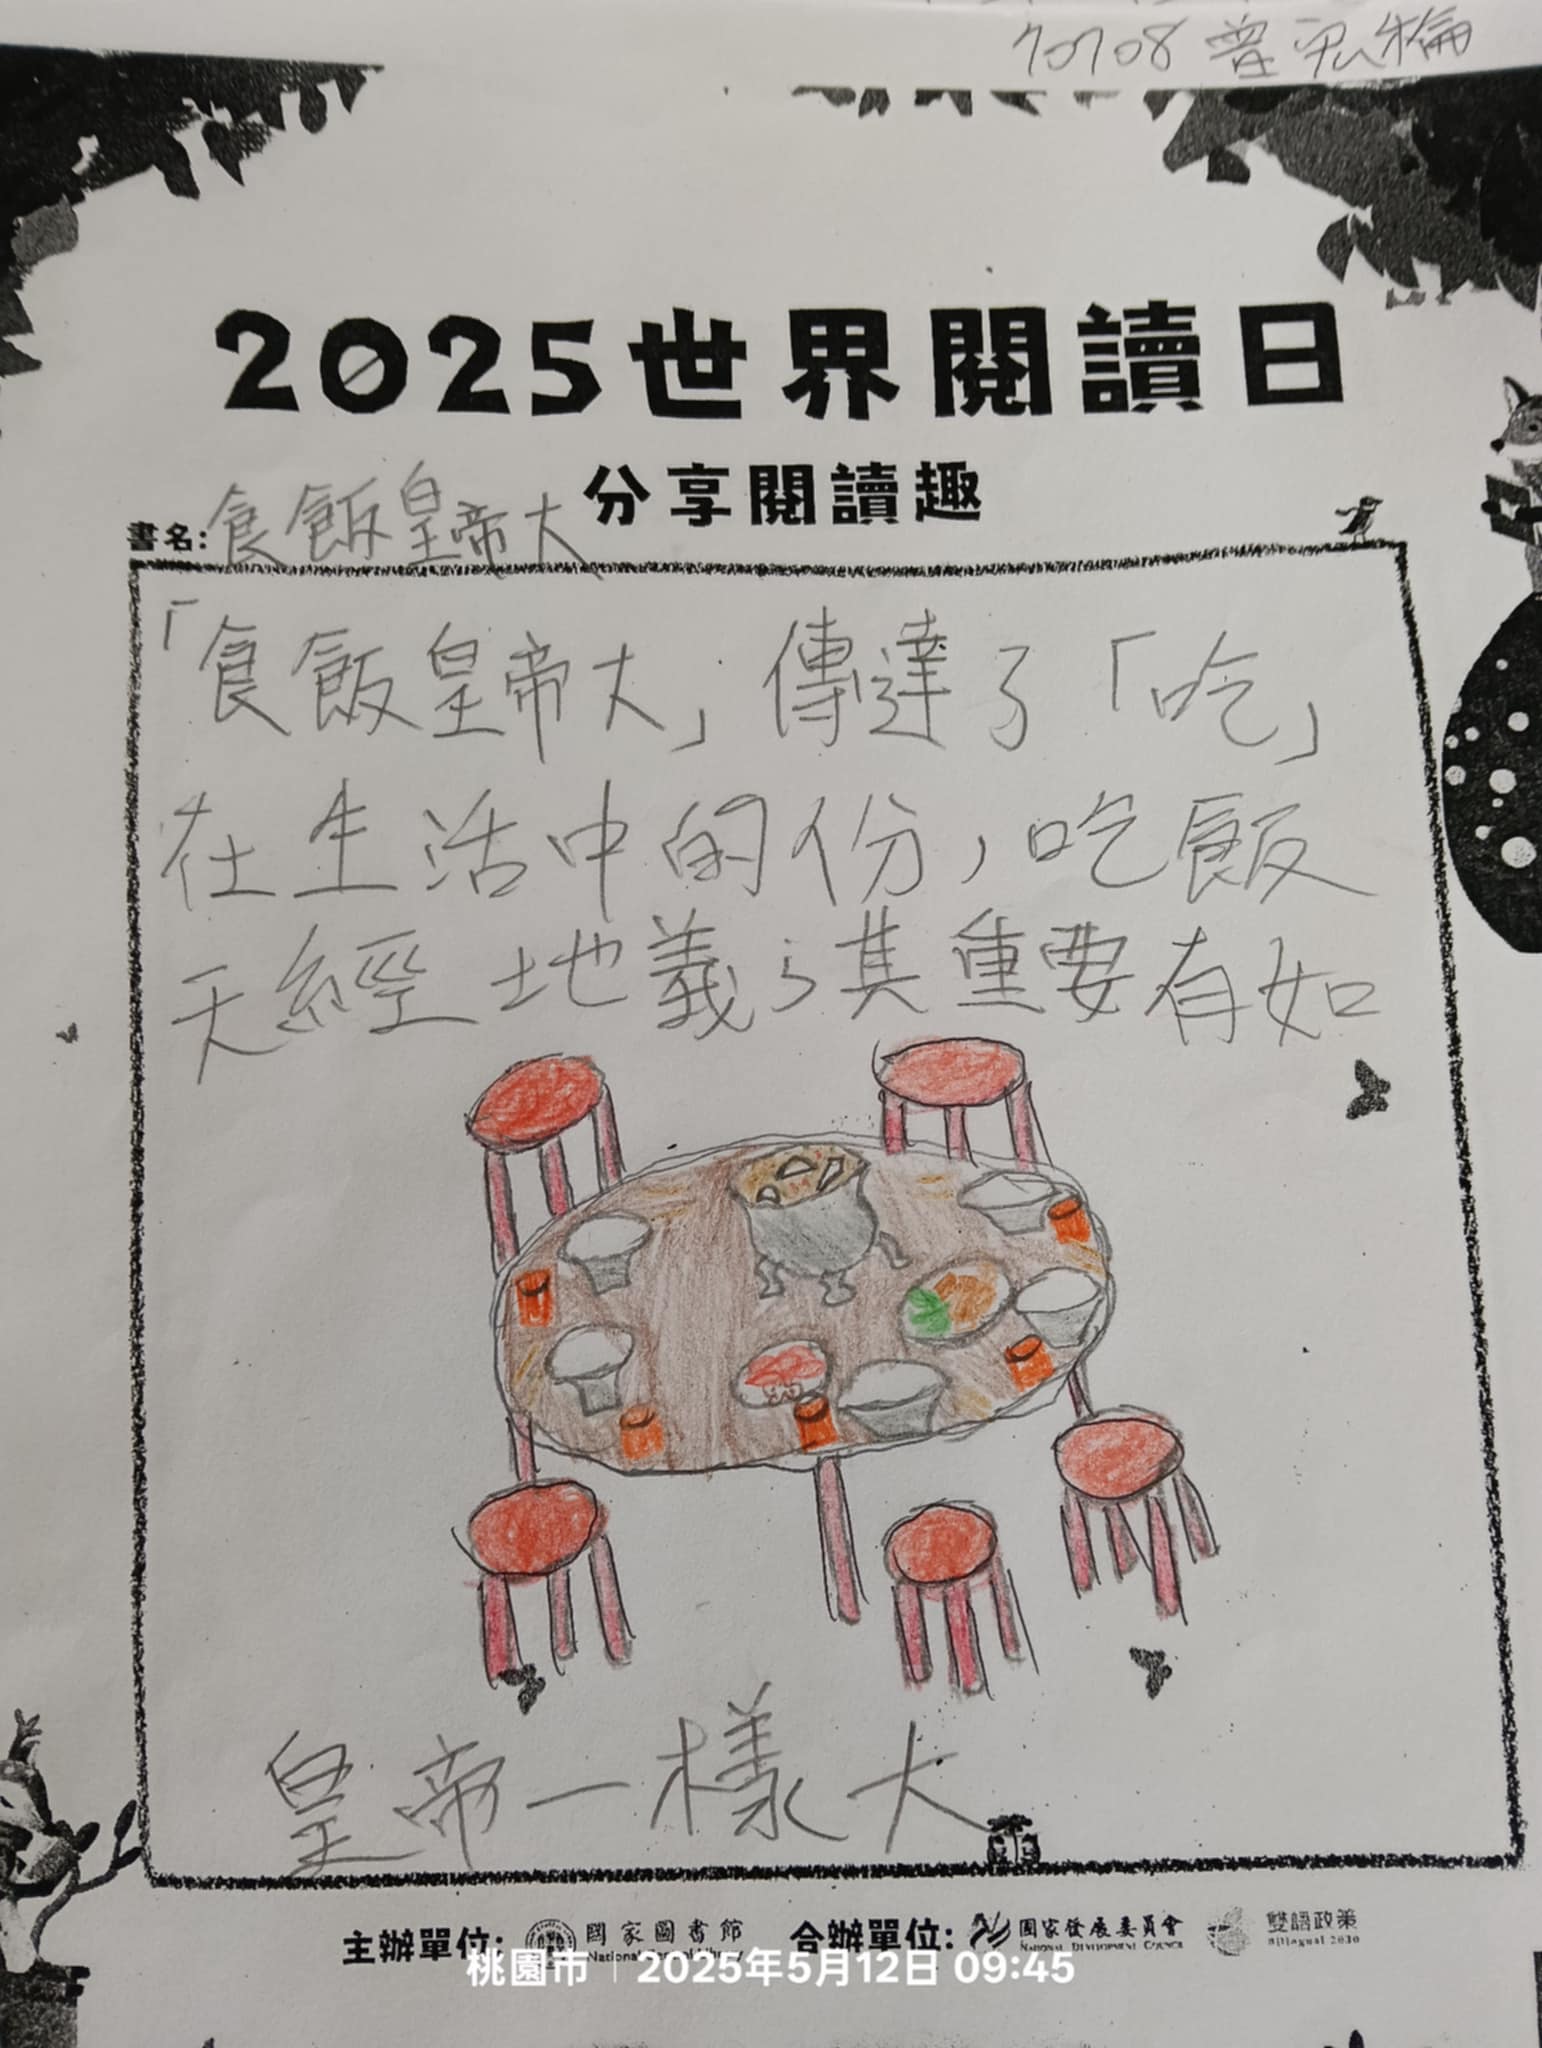 70708 曾
2025世界閱讀日
分享閱讀趣
書名:食飯皇帝大
「食飯皇帝大」傳達了「吃」
在生活中的份,吃飯
天經地義;其重要有如
皇帝一樣大
主辦單位: 國家圖書館 合辦單位: 國家發展委員會 雙語政策
National Central Library NATIONAL DEVELOPMENT COUNCIL Bilingual 2030
桃園市 | 2025年5月12日 09:45